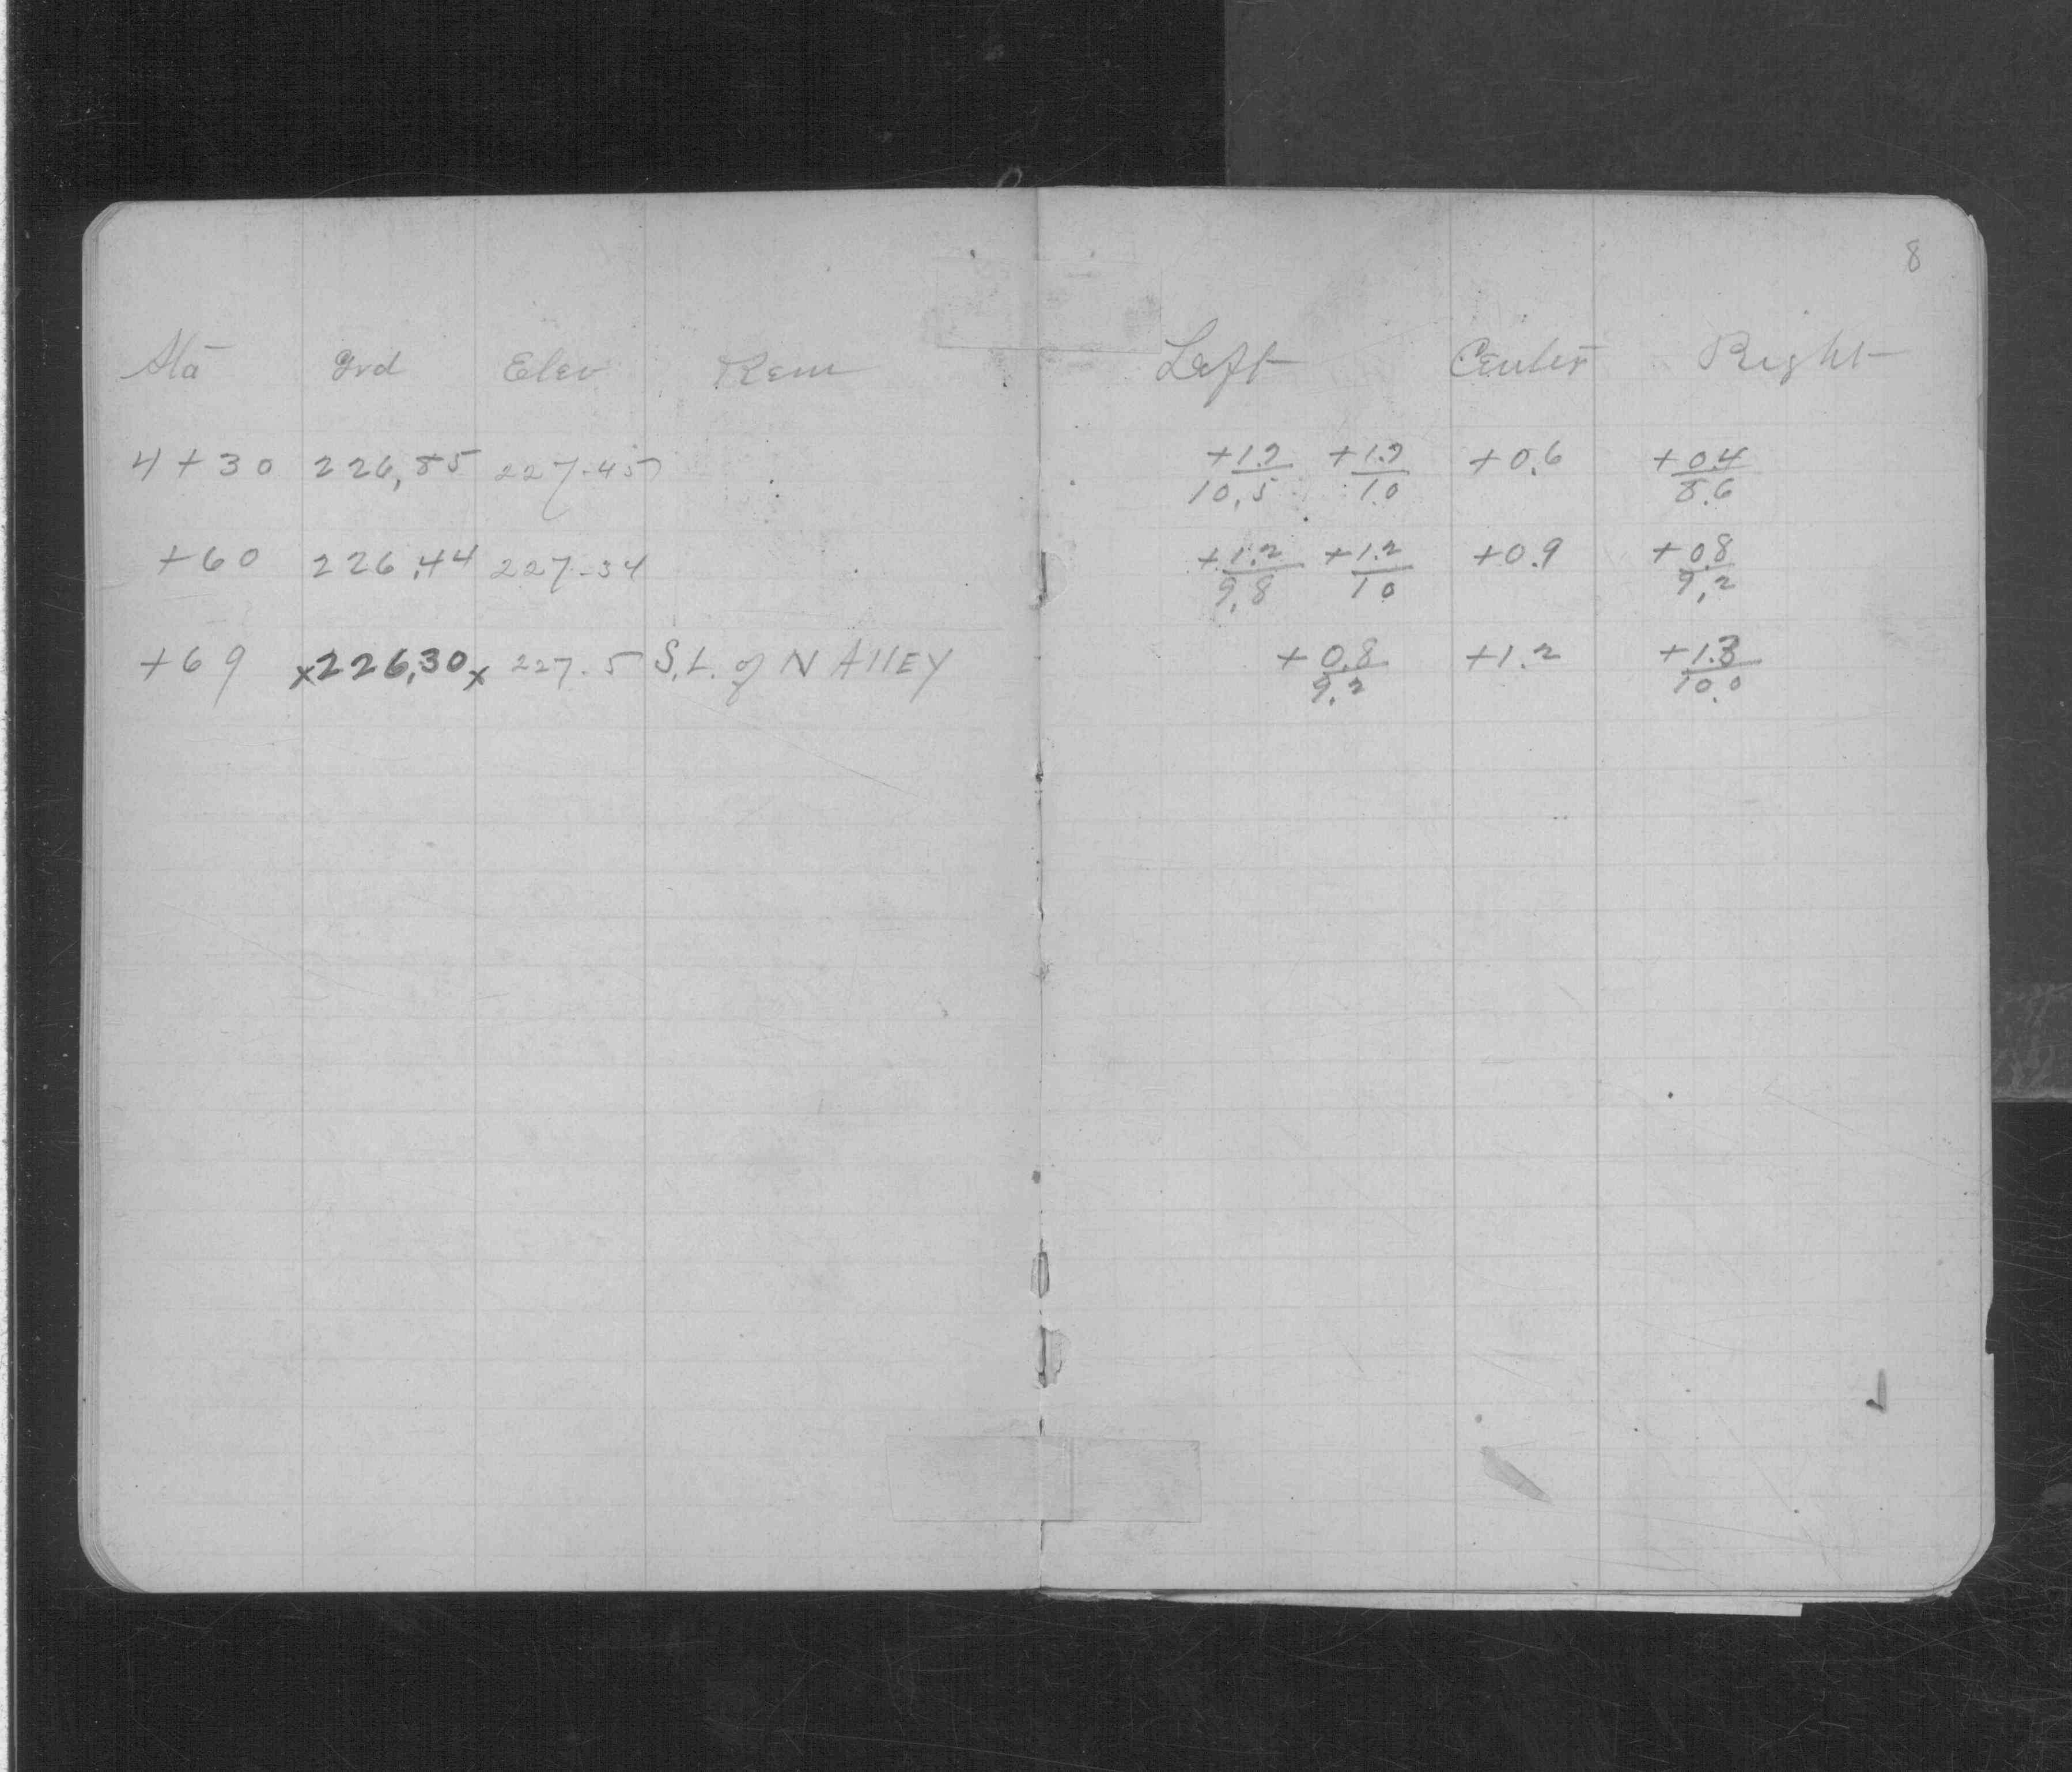 8
Sta Grd Elev Rem Left Center Right
4+30 226,85 227.45 +1.2/10.5 +1.2/10 +0.6 +0.4/8.6
+60 226.44 227-34 +1.2/9.8 +1.2/10 +0.9 +0.8/9.2
+69 x226.30x 227.5 S.L. of N AllEY +0.8/9.2 +1.2 +1.3/10.0